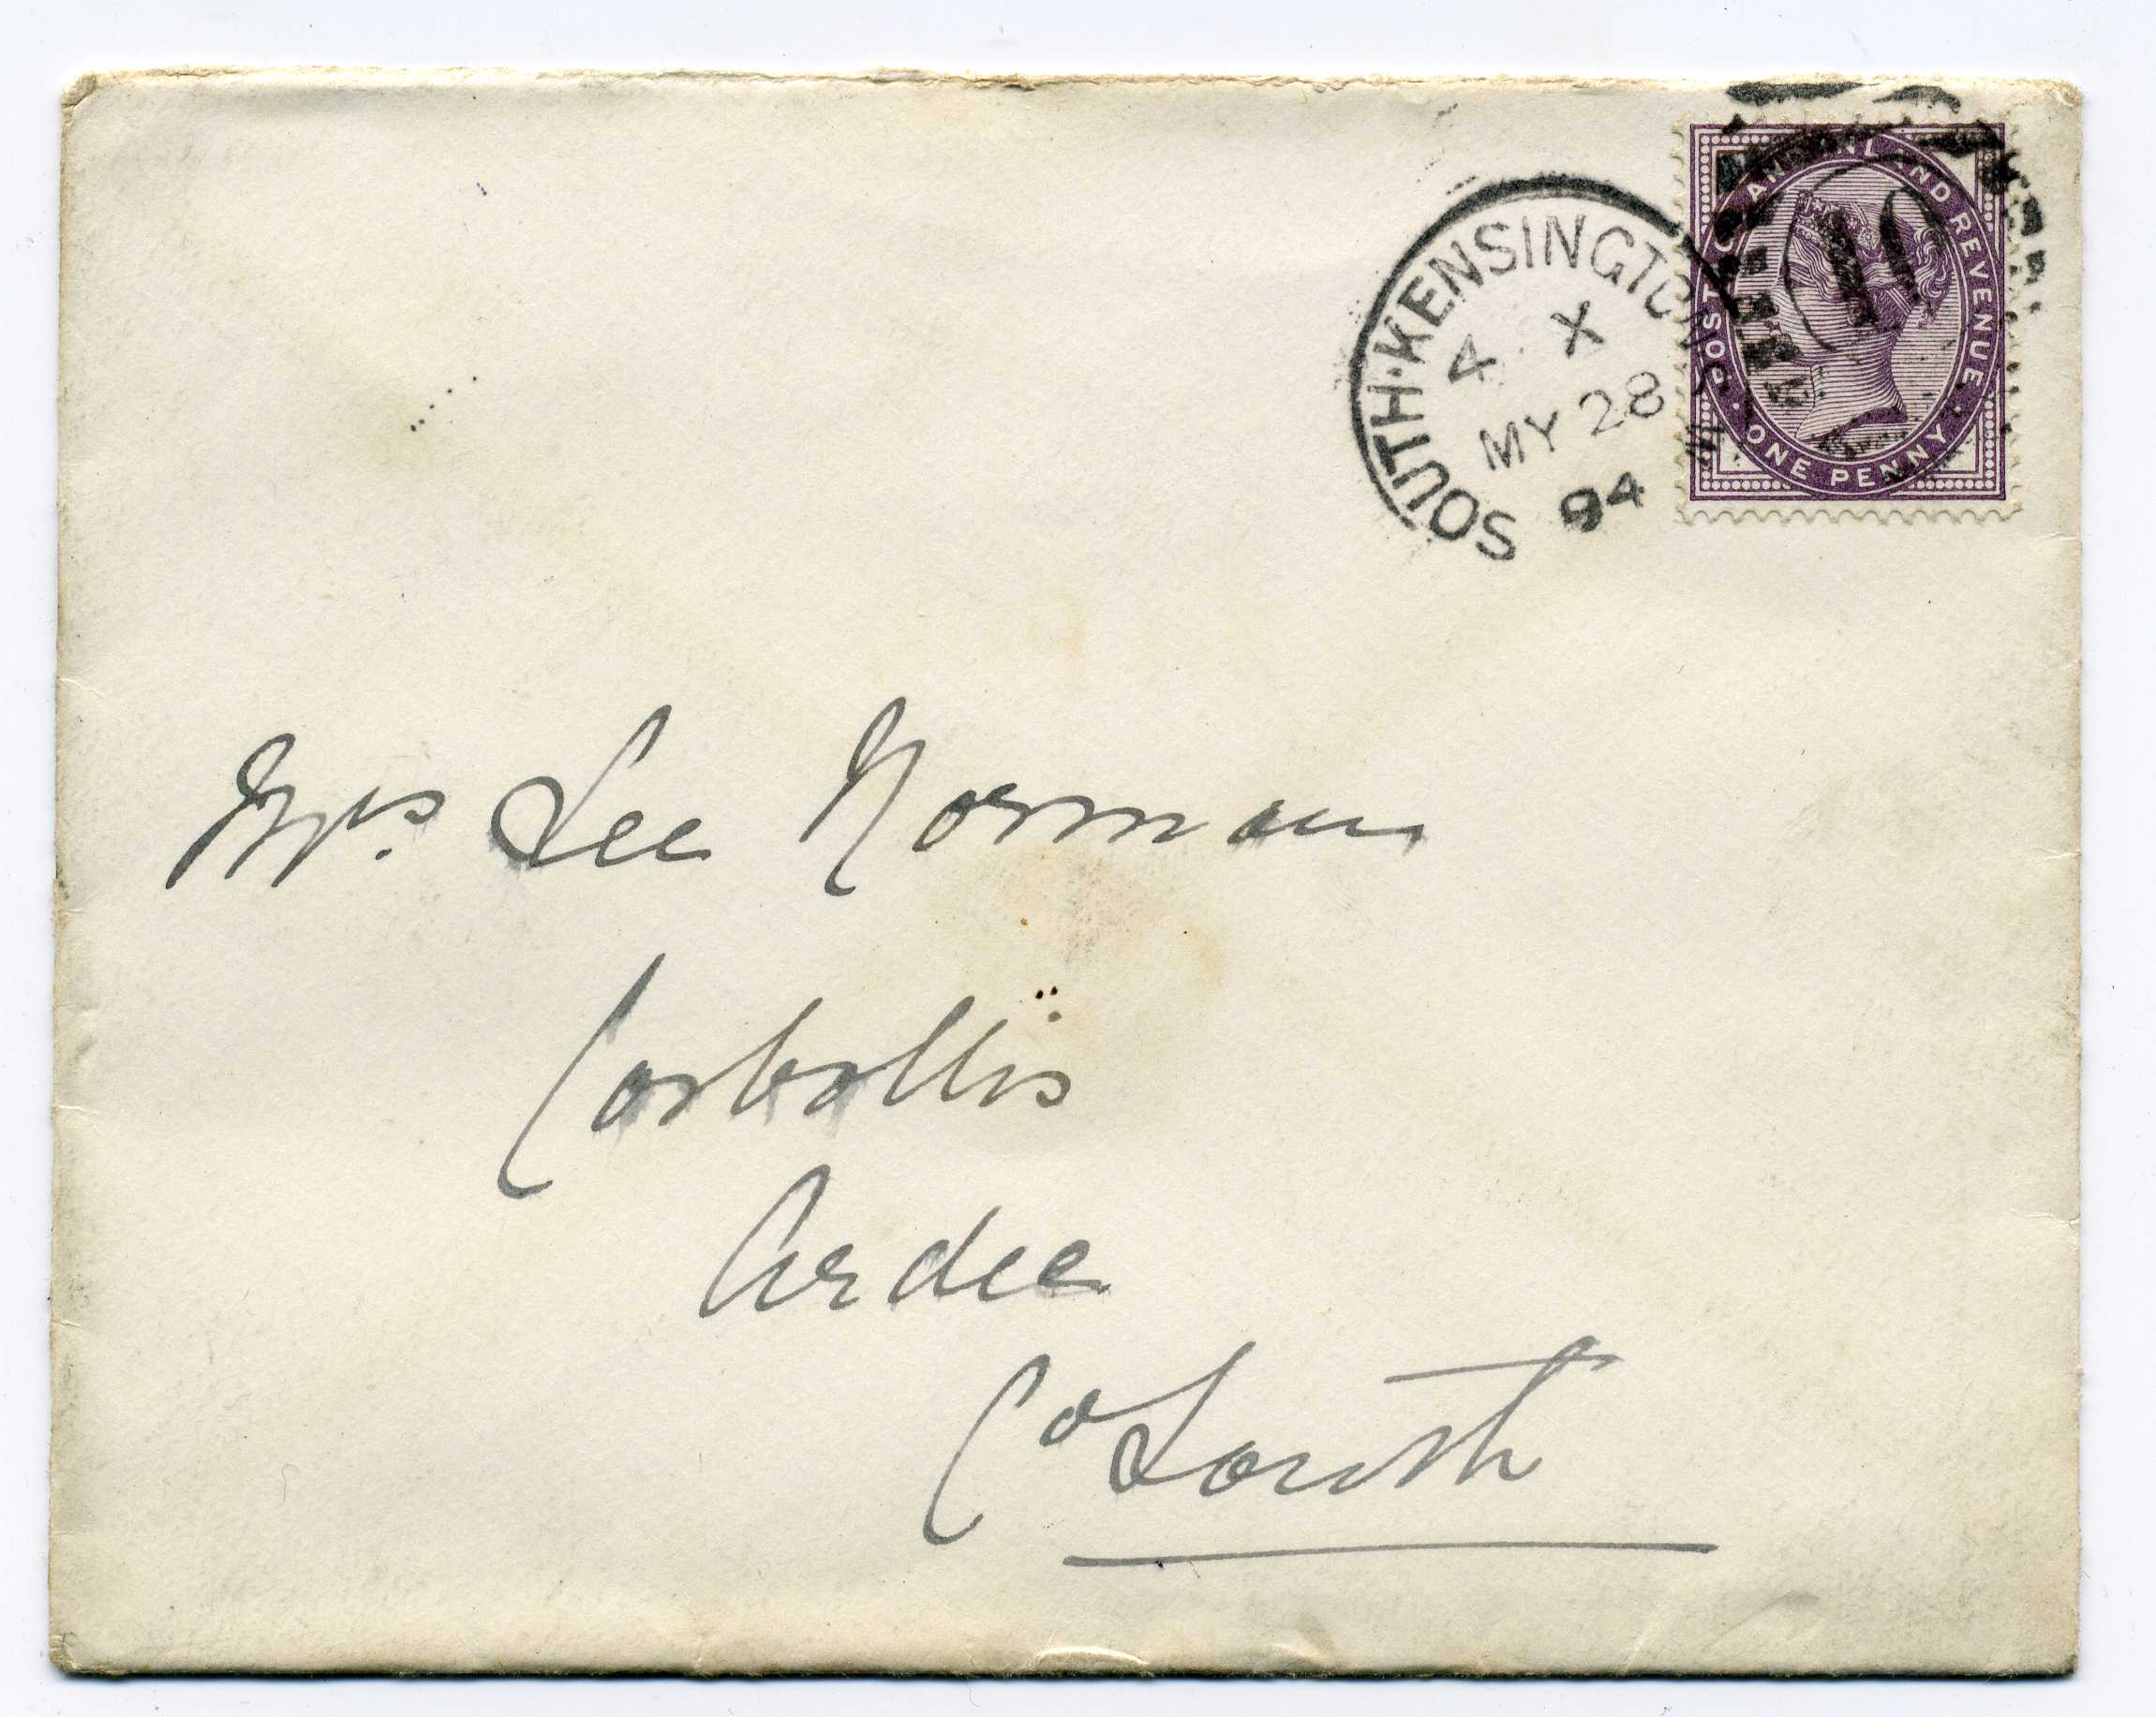 SOUTH·KENSINGTON S.W
4 X
MY 28
94
POSTAGE AND INLAND REVENUE
ONE PENNY
Mrs. Lee Norman
Corbollis
Ardee
Co Louth